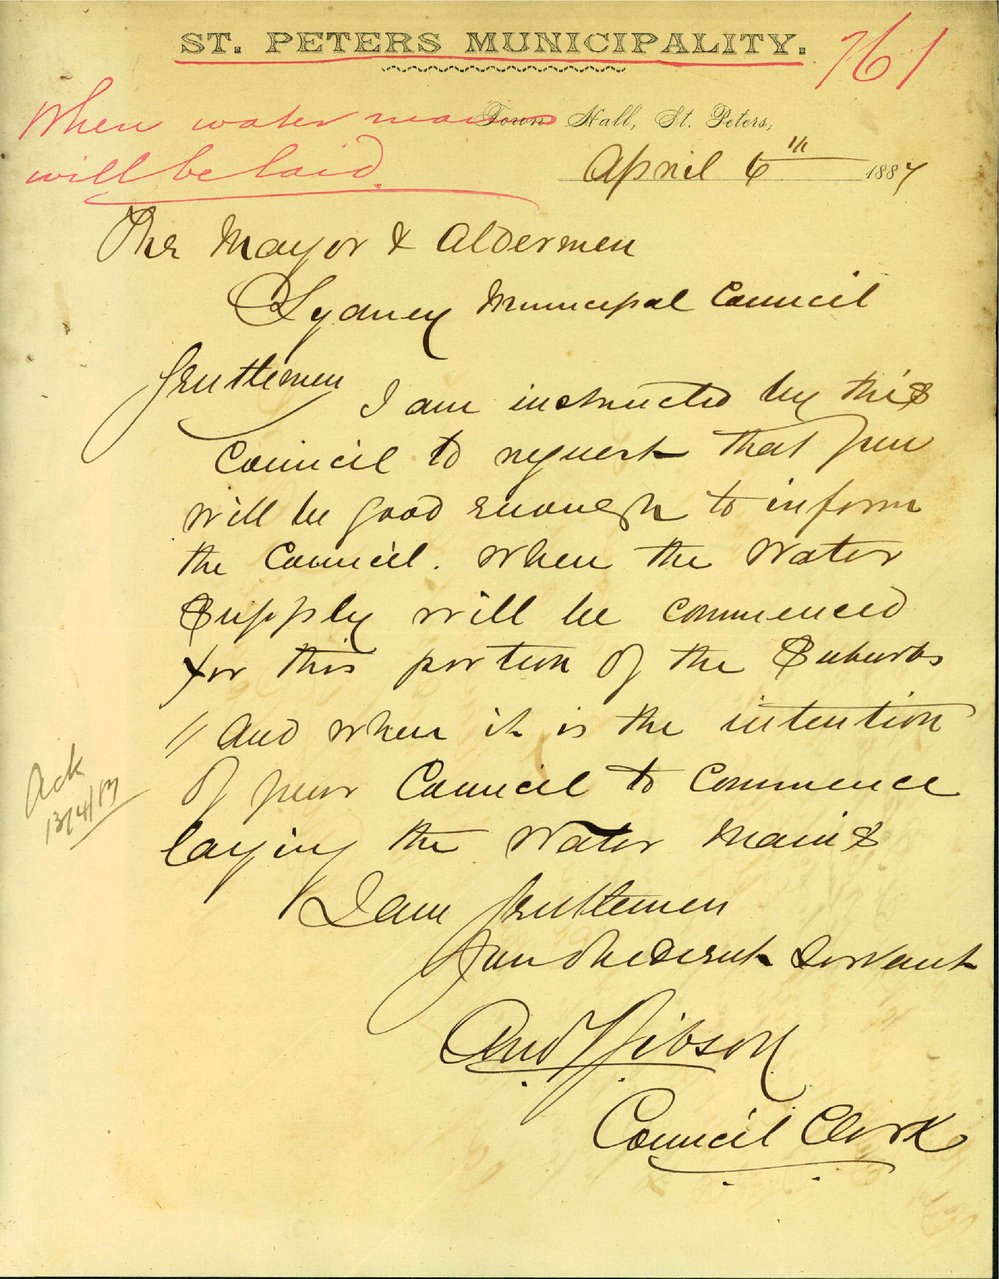 ST. PETERS MUNICIPALITY.
761
When water mains
will be laid
Town Hall, St. Peters,
April 6th 1887
The Mayor & Aldermen
Sydney Municipal Council
Gentlemen
I am instructed by this
Council to request that you
will be good enough to inform
the Council. When the Water
Supply will be commenced
for this portion of the Suburbs
// And when it is the intention
of your Council to Commence
laying the Water Mains
Ack
13/4/87
I am Gentlemen
Your Obedient Servant
And Gibson
Council Clerk